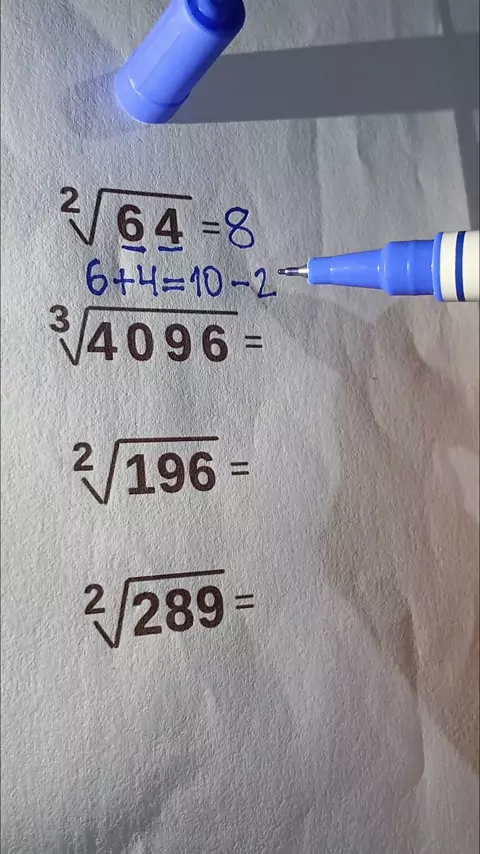 ²√64 = 8
6+4=10-2
³√4096 =
²√196 =
²√289 =